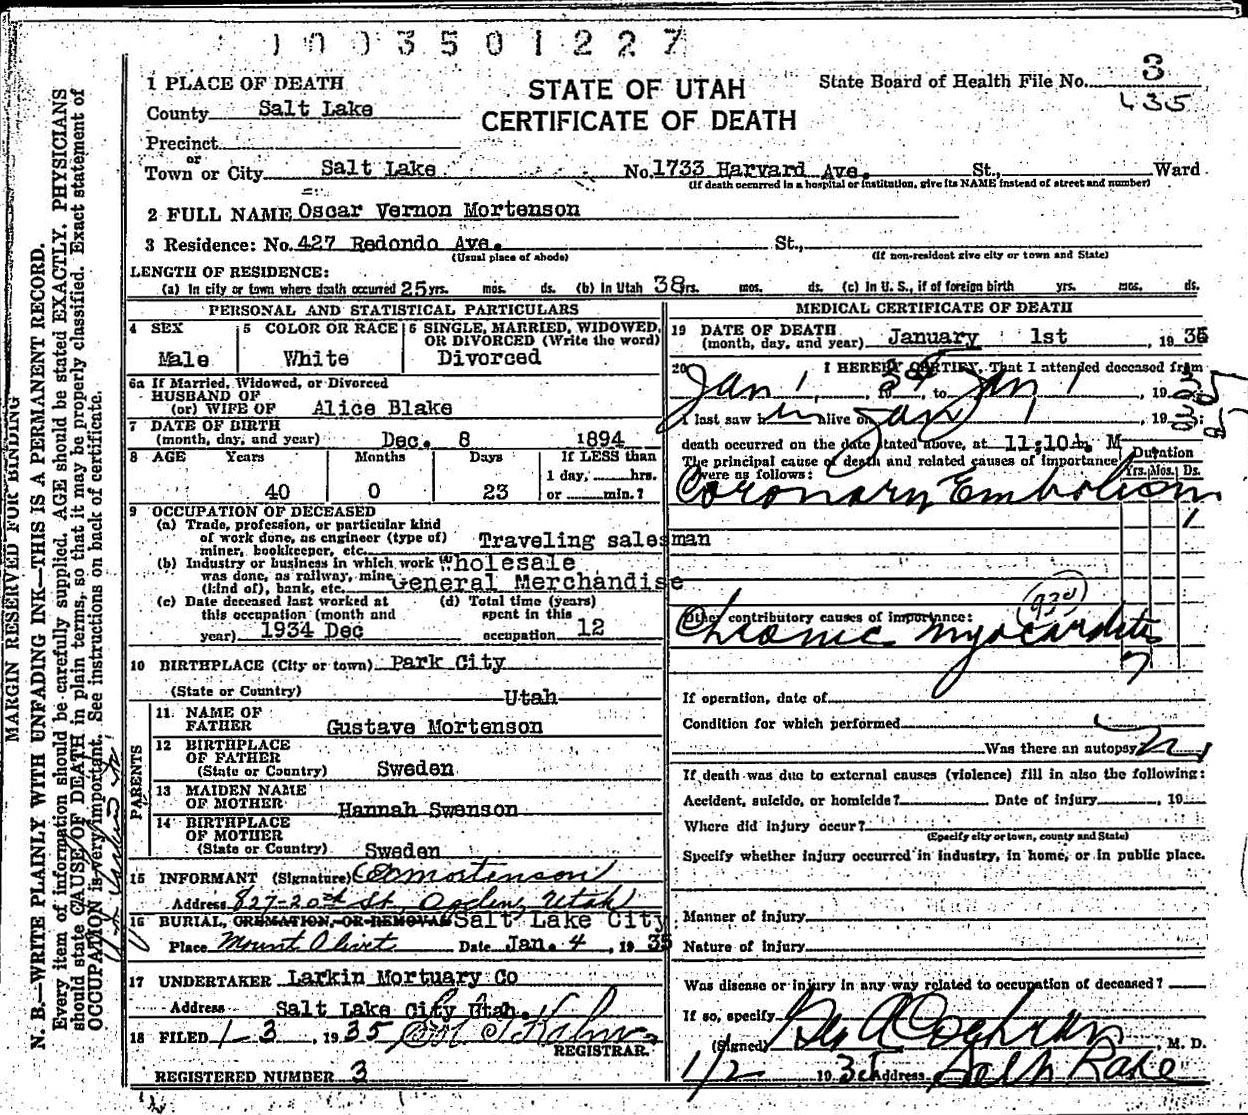 1003501227
STATE OF UTAH
CERTIFICATE OF DEATH
State Board of Health File No. 3
435
1 PLACE OF DEATH
County Salt Lake
Precinct
or
Town or City Salt Lake No. 1733 Harvard Ave. St., Ward
(If death occurred in a hospital or institution, give its NAME instead of street and number)
2 FULL NAME Oscar Vernon Mortenson
3 Residence: No. 427 Redondo Ave. St.,
(Usual place of abode) (If non-resident give city or town and State)
LENGTH OF RESIDENCE:
(a) In city or town where death occurred 25 yrs. mos. ds. (b) In Utah 38 yrs. mos. ds. (c) In U. S., if of foreign birth yrs. mos. ds.
PERSONAL AND STATISTICAL PARTICULARS
4 SEX
Male
5 COLOR OR RACE
White
6 SINGLE, MARRIED, WIDOWED,
OR DIVORCED (Write the word)
Divorced
6a If Married, Widowed, or Divorced
HUSBAND OF
(or) WIFE OF Alice Blake
7 DATE OF BIRTH
(month, day, and year) Dec. 8 1894
8 AGE Years Months Days If LESS than
1 day, hrs.
40 0 23 or min.?
9 OCCUPATION OF DECEASED
(a) Trade, profession, or particular kind
of work done, as engineer (type of)
miner, bookkeeper, etc. Traveling salesman
(b) Industry or business in which work Wholesale
was done, as railway, mine
(kind of), bank, etc. General Merchandise
(c) Date deceased last worked at (d) Total time (years)
this occupation (month and spent in this
year) 1934 Dec occupation 12
10 BIRTHPLACE (City or town) Park City
(State or Country) Utah
PARENTS
11. NAME OF
FATHER Gustave Mortenson
12 BIRTHPLACE
OF FATHER
(State or Country) Sweden
13 MAIDEN NAME
OF MOTHER Hannah Swenson
14 BIRTHPLACE
OF MOTHER
(State or Country) Sweden
15 INFORMANT (Signature) Mortenson
Address 827-20th St., Ogden, Utah
16 BURIAL, CREMATION, OR REMOVAL Salt Lake City
Place Mount Olivet Date Jan. 4, 1935
17 UNDERTAKER Larkin Mortuary Co
Address Salt Lake City Utah.
18 FILED 1-3, 1935
REGISTRAR.
REGISTERED NUMBER 3
MEDICAL CERTIFICATE OF DEATH
19 DATE OF DEATH
(month, day, and year) January 1st, 1935
20 I HEREBY CERTIFY, That I attended deceased from
Jan 1, 1935 to Jan 1, 1935
I last saw him alive on Jan 1, 1935:
death occurred on the date stated above, at 11:10 M
The principal cause of death and related causes of importance
were as follows:
Duration
Yrs. Mos. Ds.
Coronary Embolism
1
Other contributory causes of importance:
Chronic Myocarditis
?
If operation, date of
Condition for which performed
Was there an autopsy
If death was due to external causes (violence) fill in also the following:
Accident, suicide, or homicide? Date of injury , 19
Where did injury occur?
(Specify city or town, county and State)
Specify whether injury occurred in industry, in home, or in public place.
Manner of injury
Nature of injury
Was disease or injury in any way related to occupation of deceased?
If so, specify
(Signed) Geo A Cochran, M. D.
1/2 1935 Address Salt Lake
MARGIN RESERVED FOR BINDING
N. B.—WRITE PLAINLY WITH UNFADING INK—THIS IS A PERMANENT RECORD.
Every item of information should be carefully supplied. AGE should be stated EXACTLY. PHYSICIANS
should state CAUSE OF DEATH in plain terms, so that it may be properly classified. Exact statement of
OCCUPATION is very important. See instructions on back of certificate.